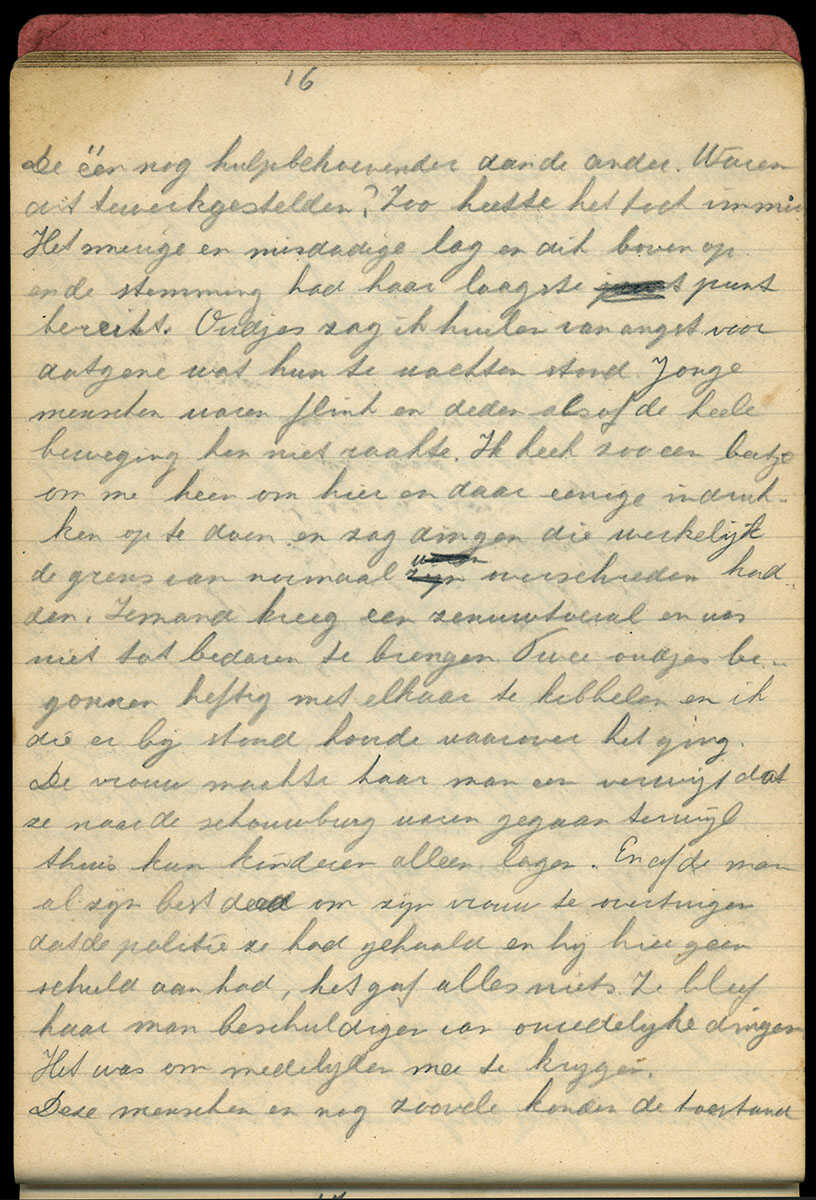 16
De één nog hulpbehoevender dan de ander. Waren
dit tewerkgestelden? Zoo heette het toch immers
Het meuige en misdadige lag er dik boven op
en de stemming had haar laagste punt
bereikt. Oudjes zag ik huilen van angst voor
datgene wat hun te wachten stond. Jonge
menschen waren flink en deden alsof de heele
beweging hen niet raakte. Ik keek zoo een beetje
om me heen om hier en daar eenige indruk-
ken op te doen en zag dingen die werkelijk
de grens van normaal waren overschreden had-
den. Iemand kreeg een zenuwtoeval en was
niet tot bedaren te brengen. Twee oudjes be-
gonnen heftig met elkaar te kibbelen en ik
die er bij stond hoorde waarover het ging.
De vrouw maakte haar man een verwijt dat
ze naar de schouwburg waren gegaan terwijl
thuis hun kinderen alleen lagen. En of de man
al zijn best deed om zijn vrouw te overtuigen
dat de politie ze had gehaald en hij hier geen
schuld aan had, het gaf alles niets. Ze bleef
haar man beschuldigen van onredelijke dingen
Het was om medelijden mee te krijgen.
Deze menschen en nog zoovele konden de toestand